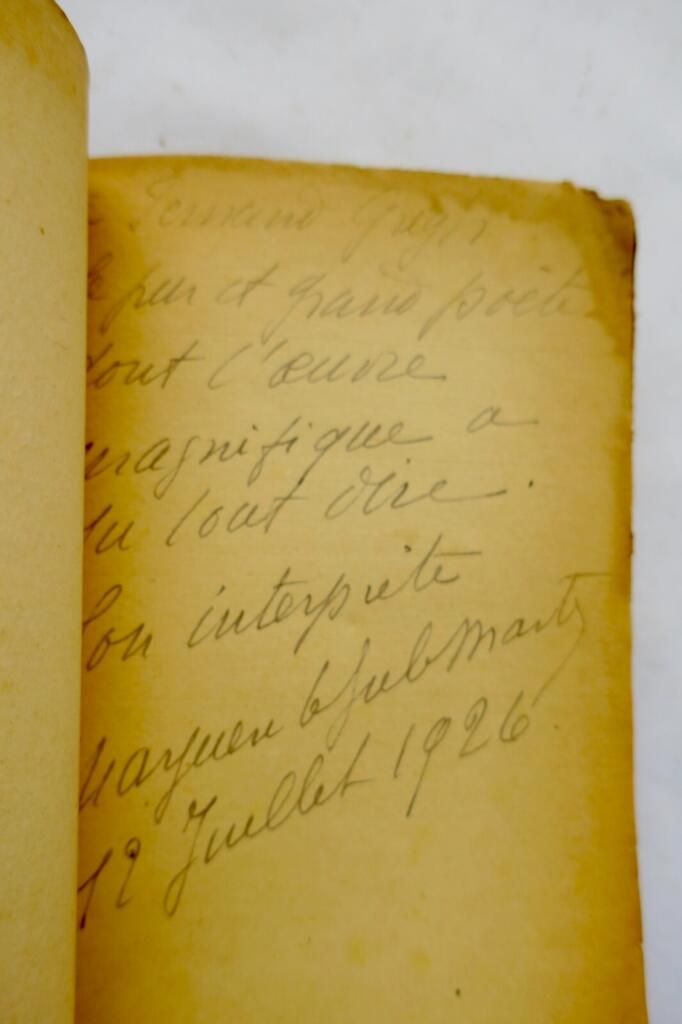 Fernand Gregh
pur et grand poète
dont l'œuvre
magnifique a
su tout dire.
Son interprète
12 Juillet 1926